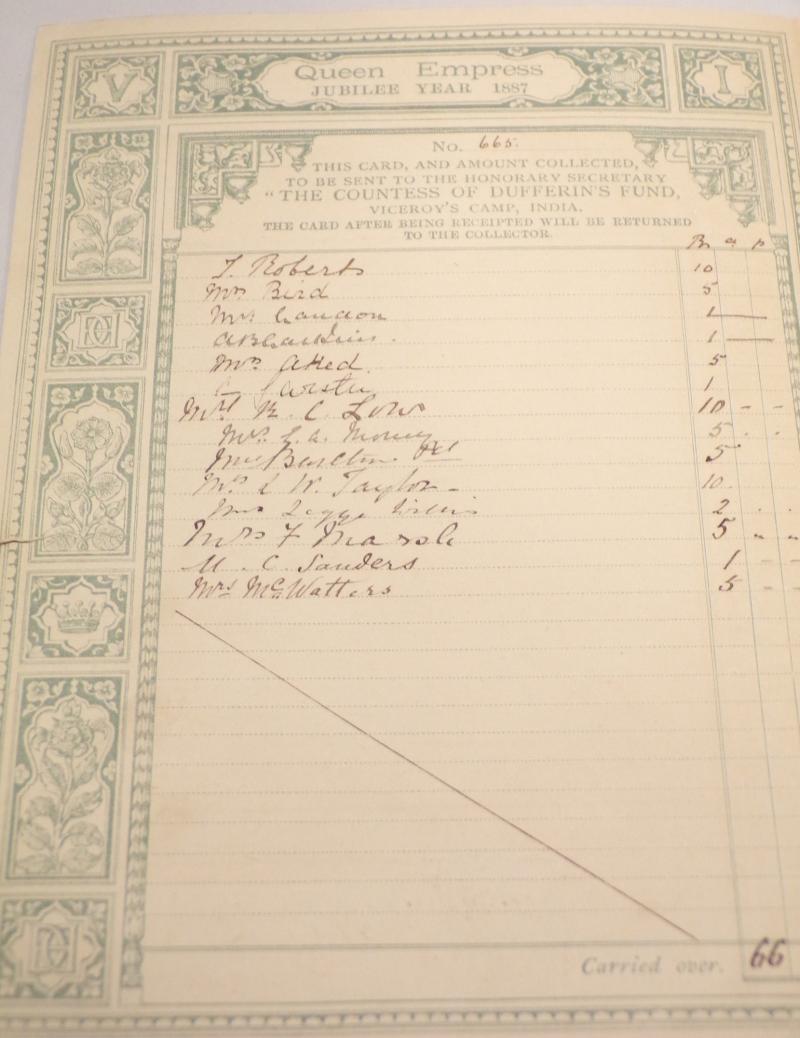 V
Queen Empress
JUBILEE YEAR 1887
I
No. 665.
THIS CARD, AND AMOUNT COLLECTED,
TO BE SENT TO THE HONORARY SECRETARY
"THE COUNTESS OF DUFFERIN'S FUND,
VICEROY'S CAMP, INDIA.
THE CARD AFTER BEING RECEIPTED WILL BE RETURNED
TO THE COLLECTOR.
Rs a p
Roberts 10
Mrs Bird 5
1 —
1 —
Mrs 5
1
Lows 10 - -
Mrs Money 5 - -
5
Mrs W. Taylor - 10
2 - -
Mrs F Marsh 5 - -
C. Sanders 1 - -
Mrs McWatters 5 - -
Carried over. 66